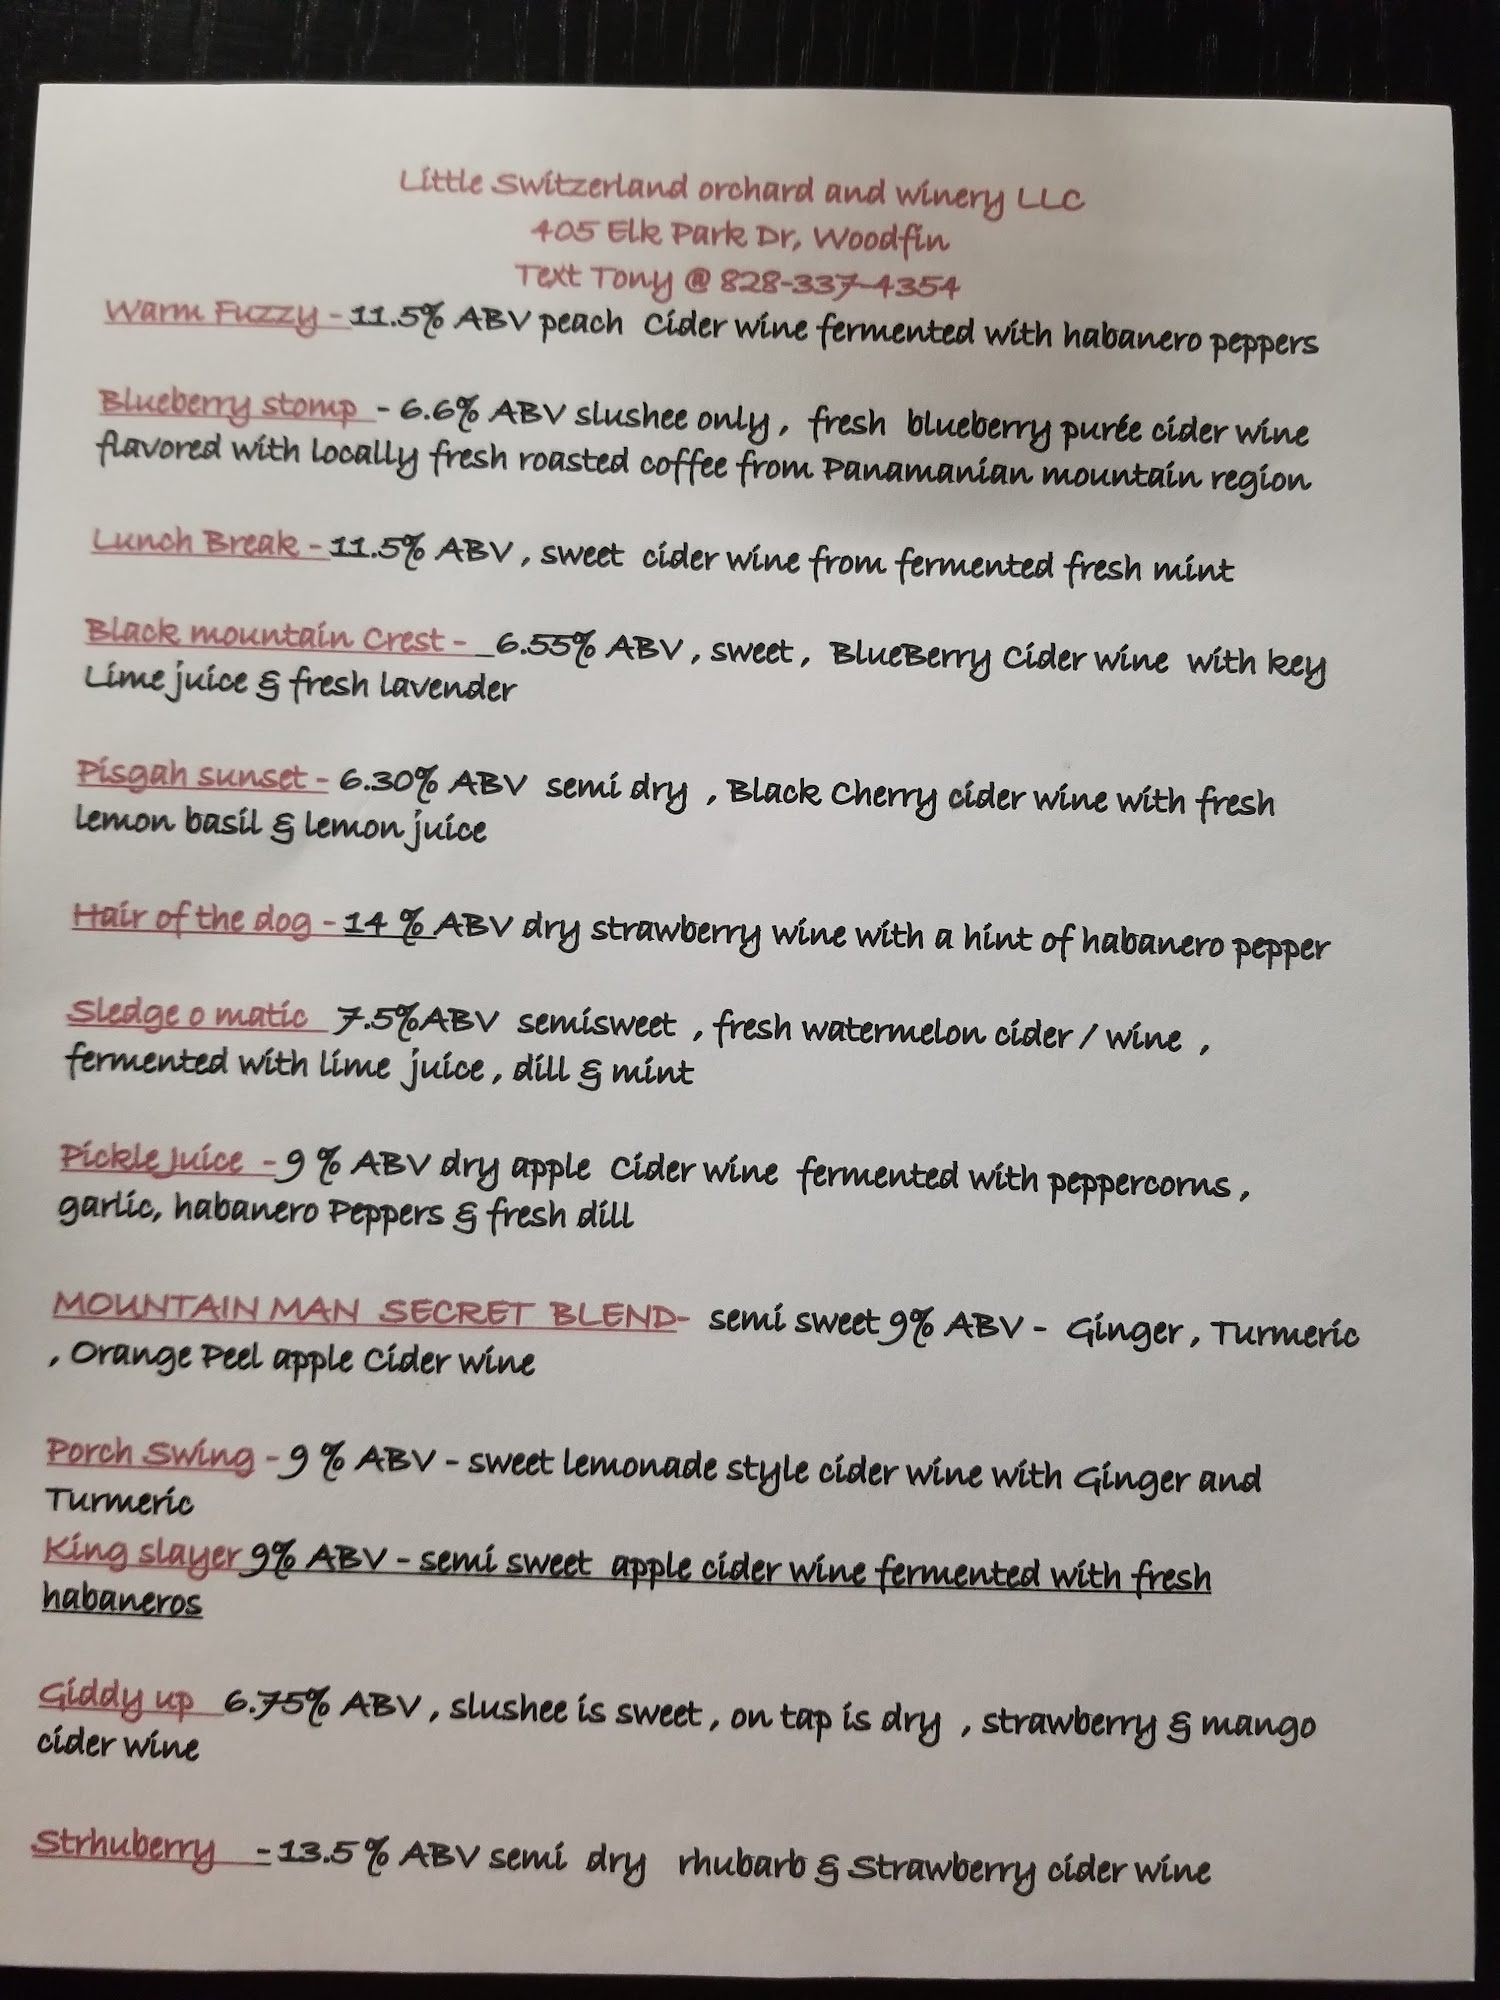 Little Switzerland orchard and winery LLC
405 Elk Park Dr, Woodfin
Text Tony @ 828-337-4354
Warm Fuzzy - 11.5% ABV peach Cider wine fermented with habanero peppers
Blueberry stomp - 6.6% ABV slushee only , fresh blueberry purée cider wine
flavored with locally fresh roasted coffee from Panamanian mountain region
Lunch Break - 11.5% ABV , sweet cider wine from fermented fresh mint
Black mountain Crest - 6.55% ABV , sweet , BlueBerry Cider wine with key
Lime juice & fresh lavender
Pisgah sunset - 6.30% ABV semi dry , Black Cherry cider wine with fresh
lemon basil & lemon juice
Hair of the dog - 14 % ABV dry strawberry wine with a hint of habanero pepper
Sledge o matic 7.5%ABV semisweet , fresh watermelon cider / wine ,
fermented with lime juice , dill & mint
Pickle juice - 9 % ABV dry apple Cider wine fermented with peppercorns ,
garlic, habanero Peppers & fresh dill
MOUNTAIN MAN SECRET BLEND- semi sweet 9% ABV - Ginger , Turmeric
, Orange Peel apple Cider wine
Porch Swing - 9 % ABV - sweet lemonade style cider wine with Ginger and
Turmeric
King slayer 9% ABV - semi sweet apple cider wine fermented with fresh
habaneros
Giddy up 6.75% ABV , slushee is sweet , on tap is dry , strawberry & mango
cider wine
Strhuberry - 13.5 % ABV semi dry rhubarb & Strawberry cider wine